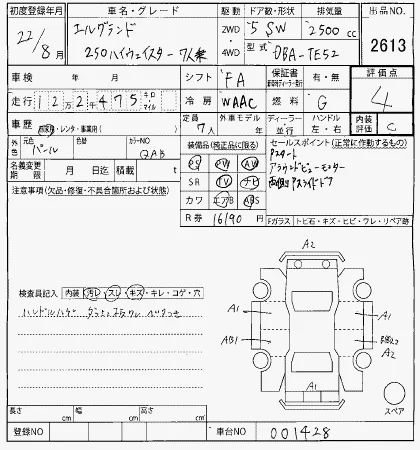 初度登録年月 車名・グレード 駆動 ドア数・形状 排気量 出品NO.
22/8月 エルグランド 2WD 5 SW 2500cc 2613
250ハイウェイスター 7人乗 4WD 型式 DBA-TE52
車検 年 月 シフト FA 保証書 有・無 評価点
走行 12万2千475 キロ マイル 冷房 WAAC 燃料 G 4
車歴 自家用・レンタ・事業用( ) 定員 7人 外車モデル 年 ディーラー 並行 ハンドル 左・右 内装評価 C
外色 元色 パール 色替 カラーNO QAB
名義変更期限 月 日迄 積載 t
装備品(純正品に限る) セールスポイント(正常に作動するもの)
PS PW AW Pスタート
SR TV ナビ アラウンドビューモニター
カワ エアB ABS 両側Pスライドドア
R券 16190円
注意事項(欠品・修復・不具合箇所および状態)
Fガラス トビ石・キズ・ヒビ・ワレ・リペア跡
A2
検査員記入 内装 汚レ・スレ・キズ・キレ・コゲ・穴
ハンドルハゲ
A1 A1
AB1
A2
A1
スペア
長さ cm 幅 cm 高さ cm
登録NO 車台NO 001428